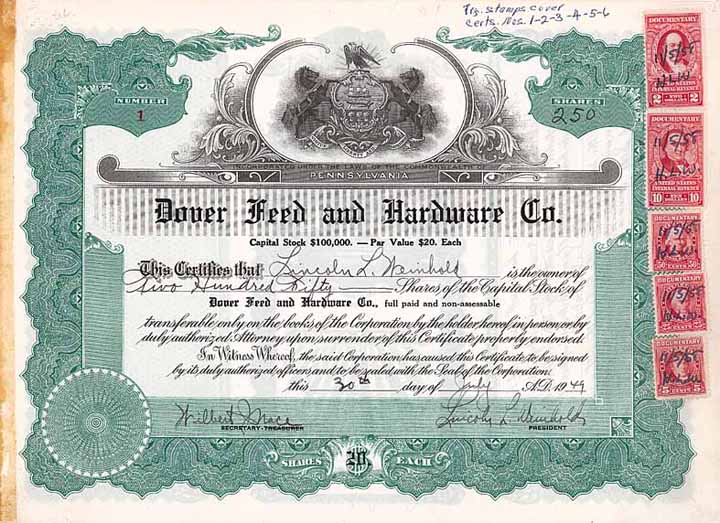 Trg. stamps cover
certs. Nos. 1-2-3-4-5-6
NUMBER
1
SHARES
250
INCORPORATED UNDER THE LAWS OF THE COMMONWEALTH OF
PENNSYLVANIA
Dover Feed and Hardware Co.
Capital Stock $100,000. — Par Value $20. Each
This Certifies that Lincoln L. Weinhold is the owner of
Two Hundred Fifty Shares of the Capital Stock of
Dover Feed and Hardware Co., full paid and non-assessable
transferable only on the books of the Corporation by the holder hereof in person or by
duly authorized Attorney upon surrender of this Certificate properly endorsed.
In Witness Whereof, the said Corporation has caused this Certificate to be signed
by its duly authorized officers and to be sealed with the Seal of the Corporation
this 30th day of July A.D. 1949
Wilbert Grace
SECRETARY-TREASURER
Lincoln L. Weinhold
PRESIDENT
SHARES
20.
EACH
DOCUMENTARY
11/5/55
UNITED STATES
INTERNAL REVENUE
2 TWO DOLLARS 2
DOCUMENTARY
11/5/55
UNITED STATES
INTERNAL REVENUE
10 10
DOCUMENTARY
11/5/55
50¢ CENTS 50¢
DOCUMENTARY
11/5/55
CENTS
DOCUMENTARY
11/5/55
5 CENTS 5